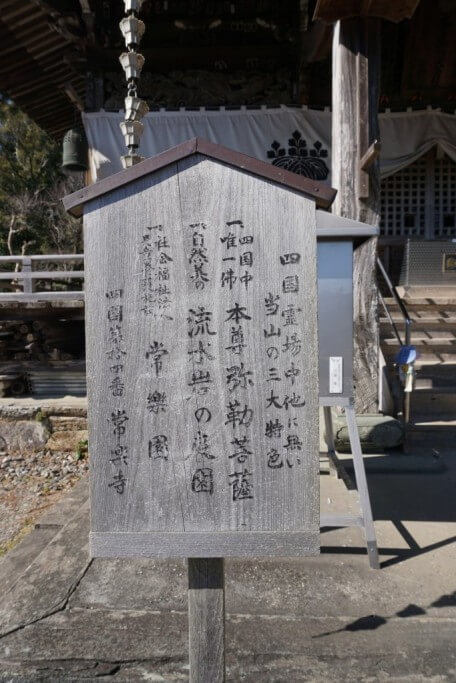 四国霊場中他に無い
当山の三大特色
一、四国中
唯一佛 本尊弥勒菩薩
一、自然美の 流水岩の庭園
一、社会福祉法人
常樂園
四国第拾四番 常楽寺